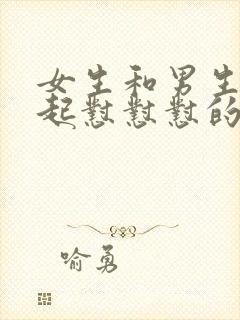 女生和男生
起怼怼怼的
喻勇